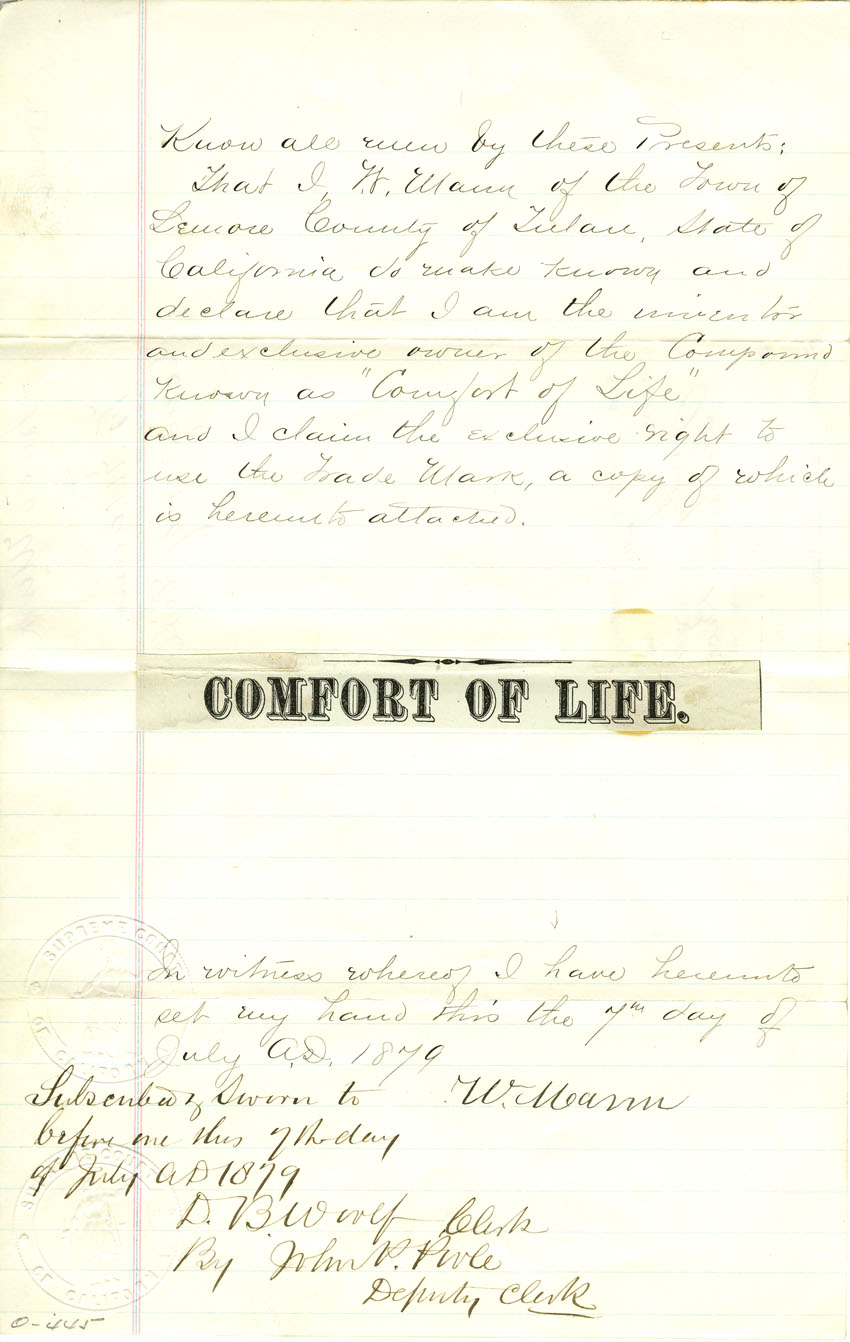 Know all men by these Presents;
That I, W. Mann of the Town of
Lemore County of Tulare, State of
California do make known and
declare that I am the inventor
and exclusive owner of the Compound
known as "Comfort of Life"
and I claim the exclusive right to
use the Trade Mark, a copy of which
is hereunto attached.
COMFORT OF LIFE.
In witness whereof I have hereunto
set my hand this the 7th day of
July A.D. 1879
W. Mann
Subscribed & Sworn to
before me this 7th day
of July AD 1879
D. B. Woolf Clerk
By John P. Poole
Deputy Clerk
SUPREME COURT
OF CALIFORNIA
SUPREME COURT
OF CALIFORNIA
O-445